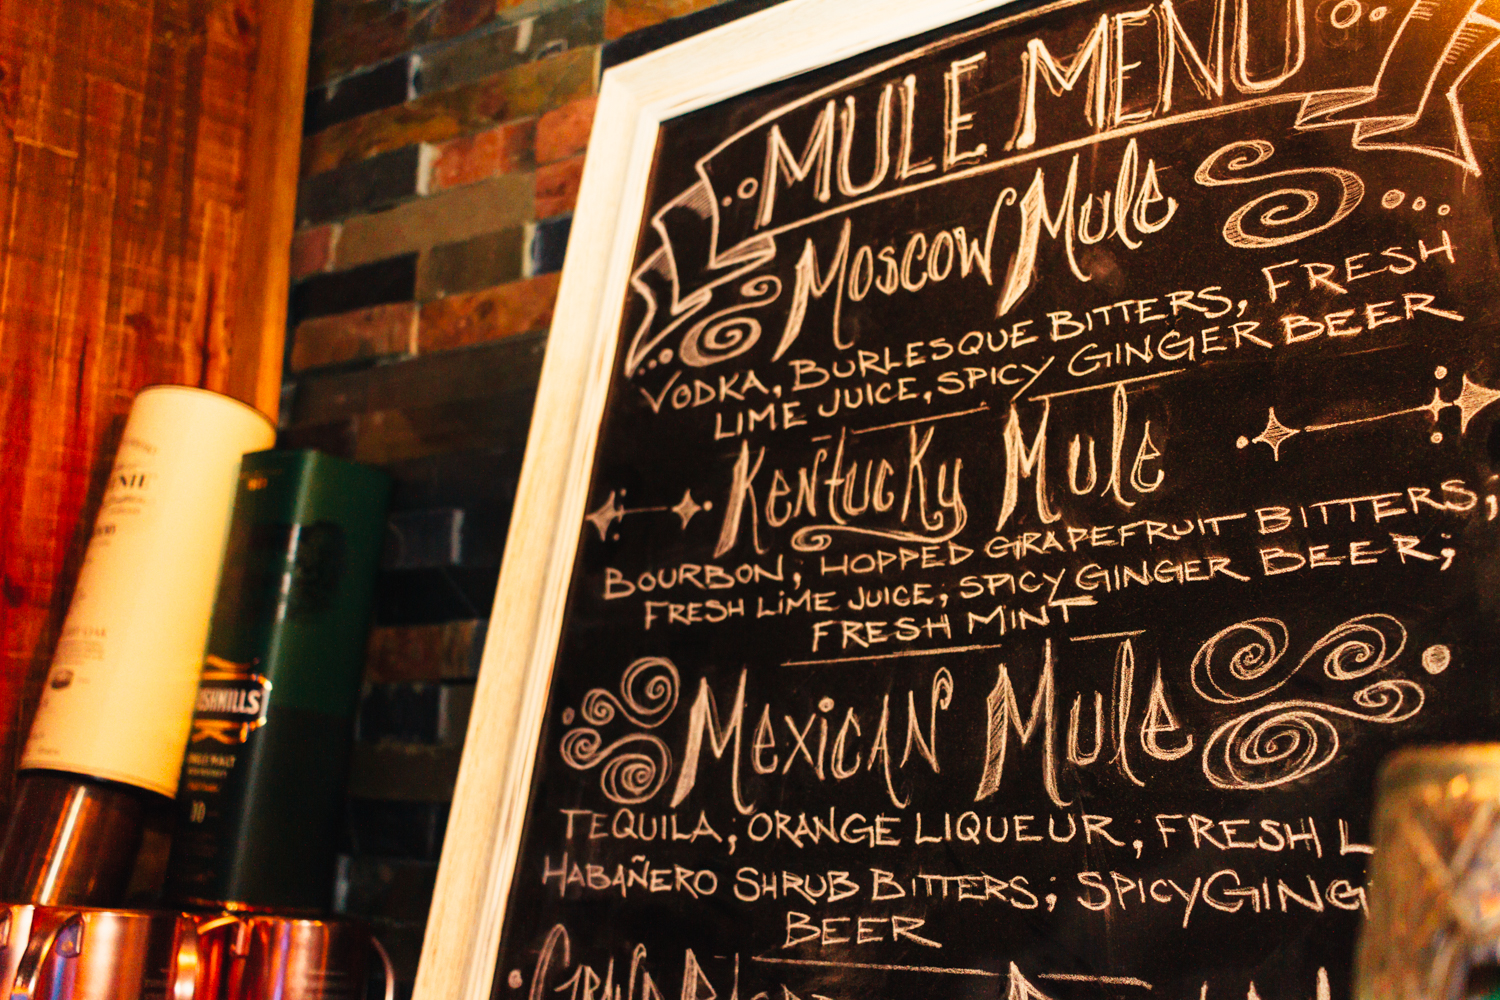 MULE MENU
Moscow Mule
VODKA, BURLESQUE BITTERS, FRESH
LIME JUICE, SPICY GINGER BEER
Kentucky Mule
BOURBON; HOPPED GRAPEFRUIT BITTERS;
FRESH LIME JUICE; SPICY GINGER BEER;
FRESH MINT
Mexican Mule
TEQUILA; ORANGE LIQUEUR; FRESH L
HABAÑERO SHRUB BITTERS; SPICY GING
BEER
USHMILLS
NGLE MALT
10